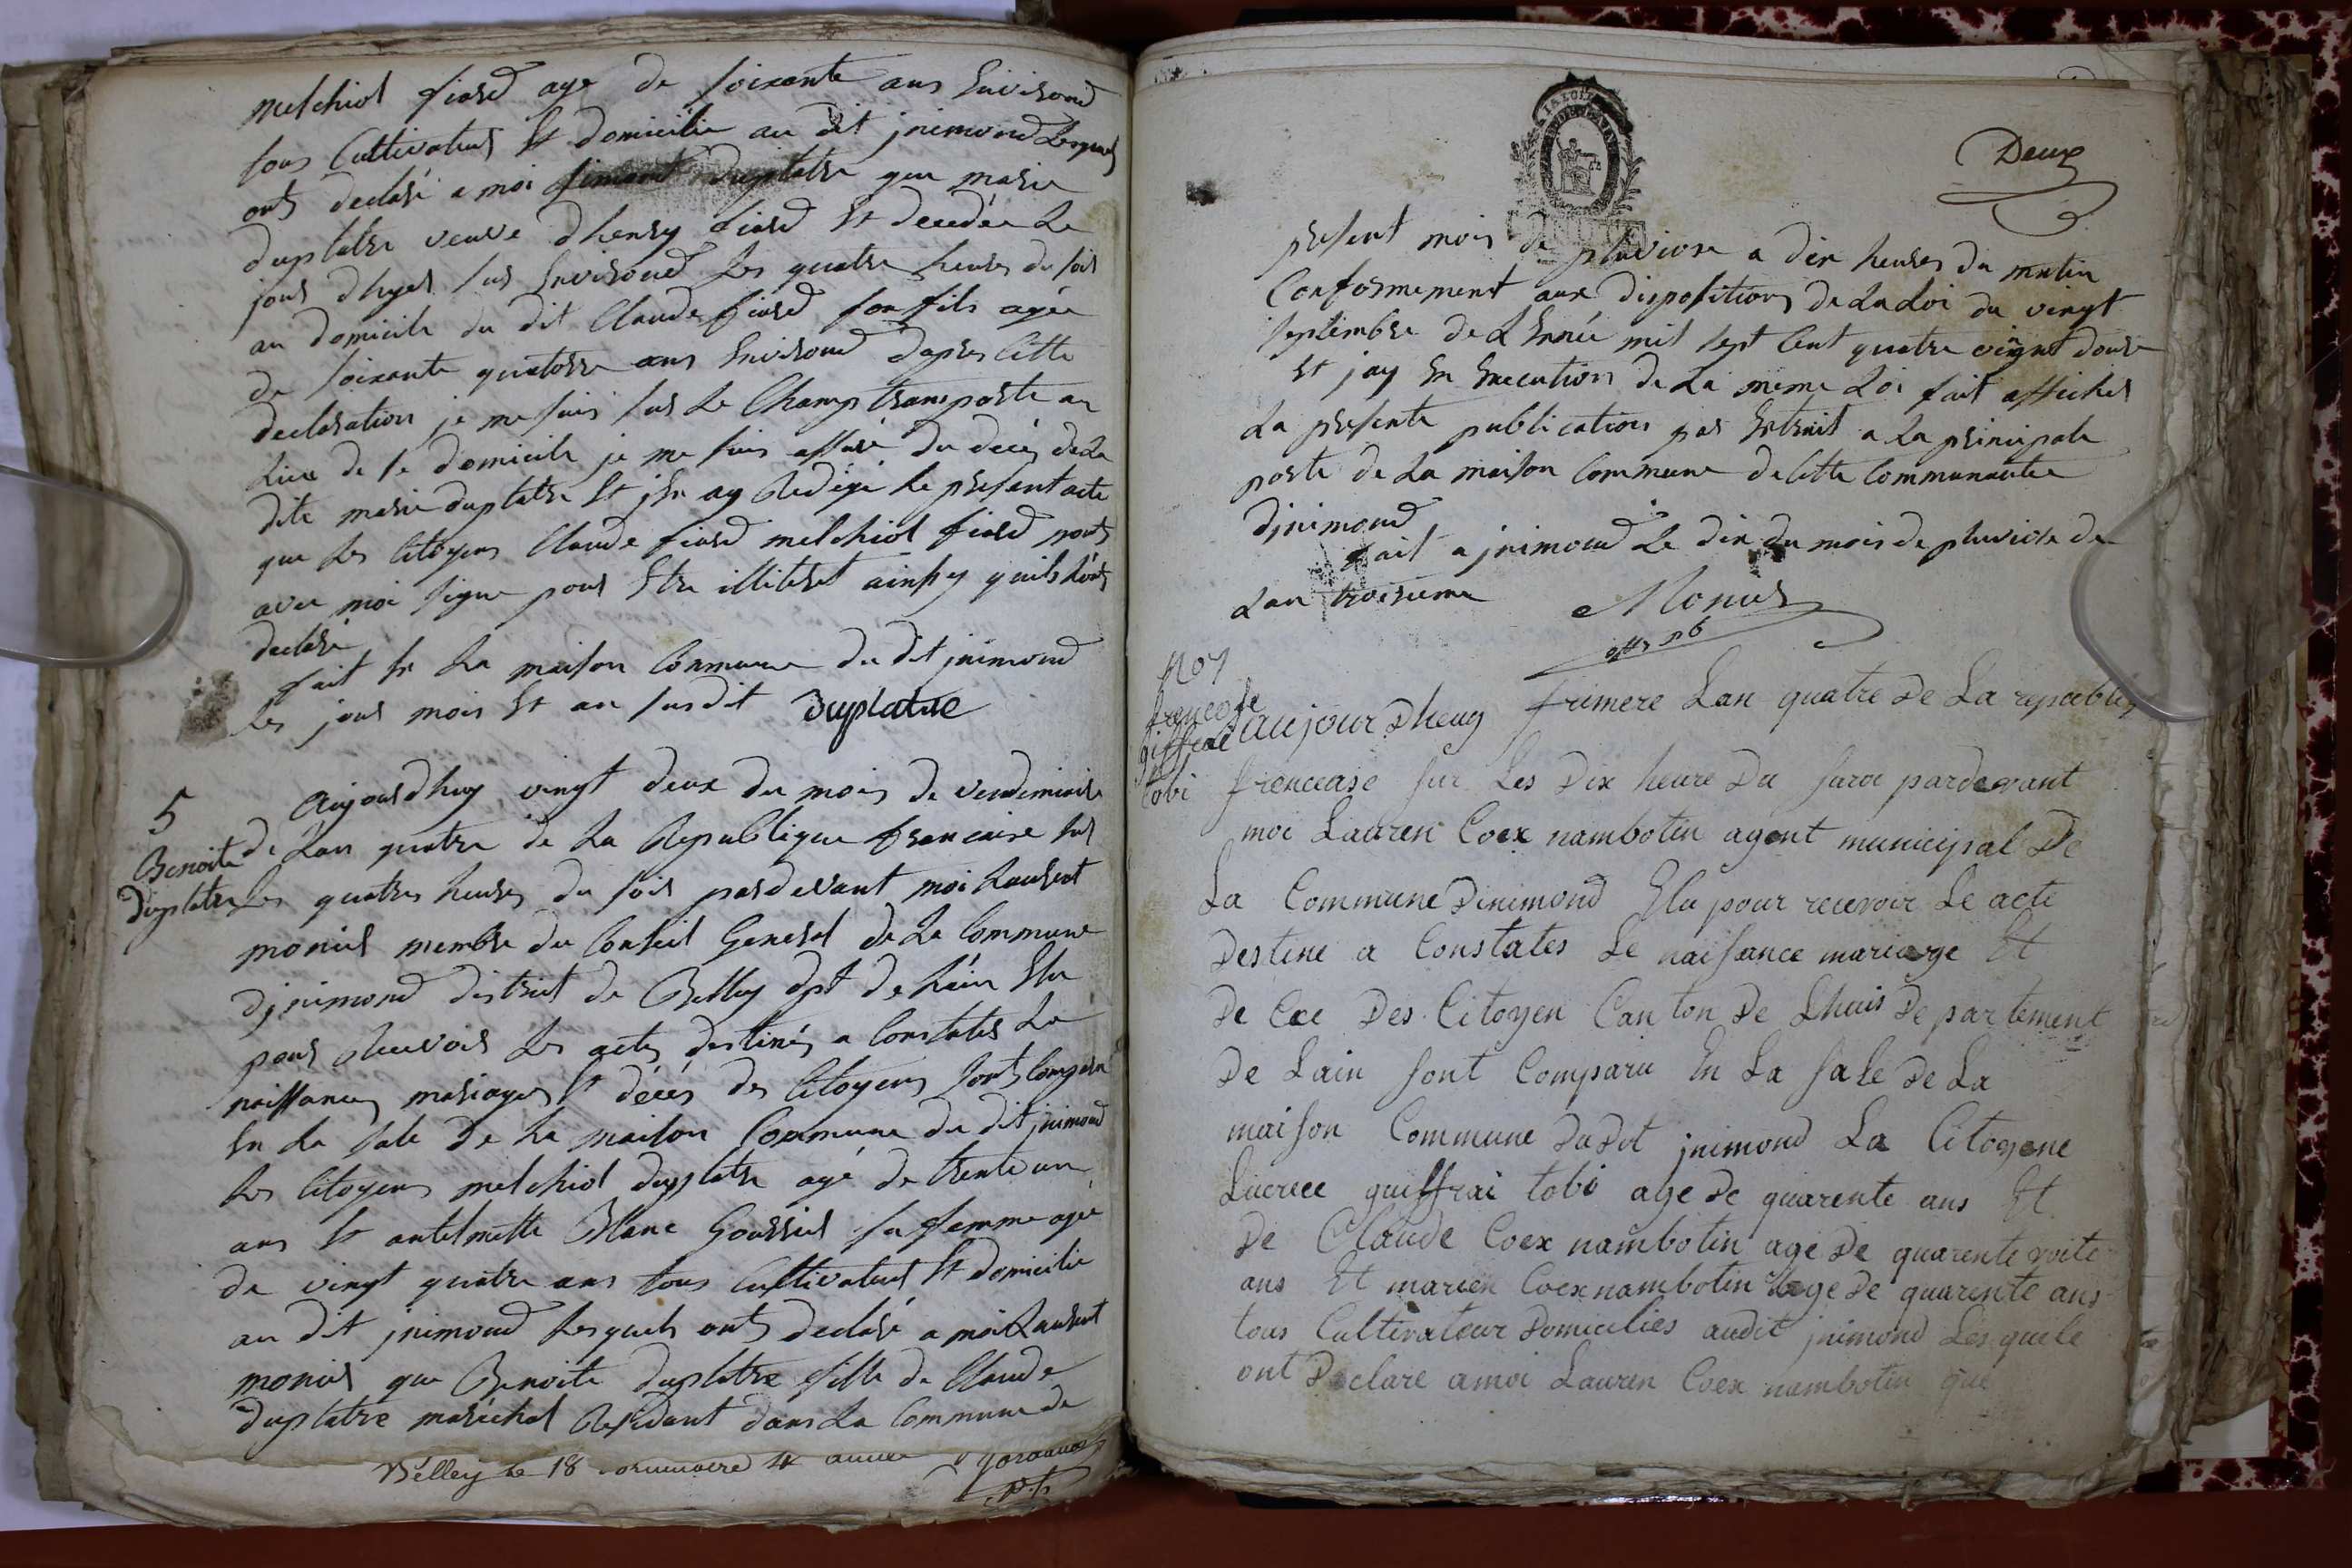 melchiol fiard age de soixante ans Environd
tous Cultivateurs Et domicilie au dit jnimond Lesquels
onts declaré a moi duplatre que marie
duplatre veuve dhenry fiard Et decedée Le
jour dhyer sur Environd Les quatre heures du soir
au domicile du dit Claude fiard son fils agée
de soixante quatorse ans Environd dapres Cette
declaration je me suis sur Le Champ transporte au
Lieu de se domicile je me suis assuré du decés dela
dite marie duplatre Et jEn ay Redigé Le present acte
que Les Citoyens Claude fiard melchiol fiard nonts
avec moi signe pour Etre illiteret ainsy quils Lonts
declaré
fait En La maison Commune du dit jnimond
Les jour mois Et an susdit Duplatre
5
Benoite
Duplatre
Aujourdhuy vingt deux du mois de vendemiaire
de Lan quatre de La Republique francaise sur
Les quatres heures du soir pardevant moi Laurent
monier membre du Conseil General de La Commune
djnimond district de Belley dpt de Lain Elu
pour Recevoir Les actes destinés a Constater La
naissances mariages Et décés des Citoyens sonts Comparu
En La sale De La maison Commune du dit jnimond
Les Citoyens melchiol duplatre agé de trente un
ans Et antelmette Blanc Goussier sa femme agée
de vingt quatre ans tous Cultivateurs Et domicilie
au dit jnimond Lesquels onts declaré a moi Laurent
monier que Benoite duplatre fille de Claude
duplatre maréchal Residant dans La Commune de
Belley le 18 4e année
Deux
present mois de pluviose a dix heures du matin
Conformement aux dispositions de La Loi du vingt
septembre de LEnnée mil sept Cent quatre vingnt douse
Et jay En Execution de La meme Loi fait afficher
La presente publication par Extrait a La principale
porte de La maison Commune de Cette Communautée
djnimond
fait a jnimond Le dix du mois de pluviose de
Lan troisieme Monier
off pb
No 7
tobi
aujour Dheuy frimere Lan quatre De La republiq
frencaise sur Les Dix heure Du soroi pardevant
moi Lauren Coex nambotin agent municipal De
La Commune Dinimond Elu pour recevoir Le acte
Destine a Constates Le naissance mariarge Et
De Cee Des Citoyen Canton De Lhuis Departement
De Lain sont Comparu En La sale De La
maison Commune Dudit jnimond La Citoyene
Lucrece guiffrai tobi age De quarente ans Et
De Claude Coex nambotin age De quarente voite
ans Et marien Coex nambotin age De quarente ans
tous Cultivateur Domicilies audit jnimond Les quele
ont Declare amoi Lauren Coex nambotin que